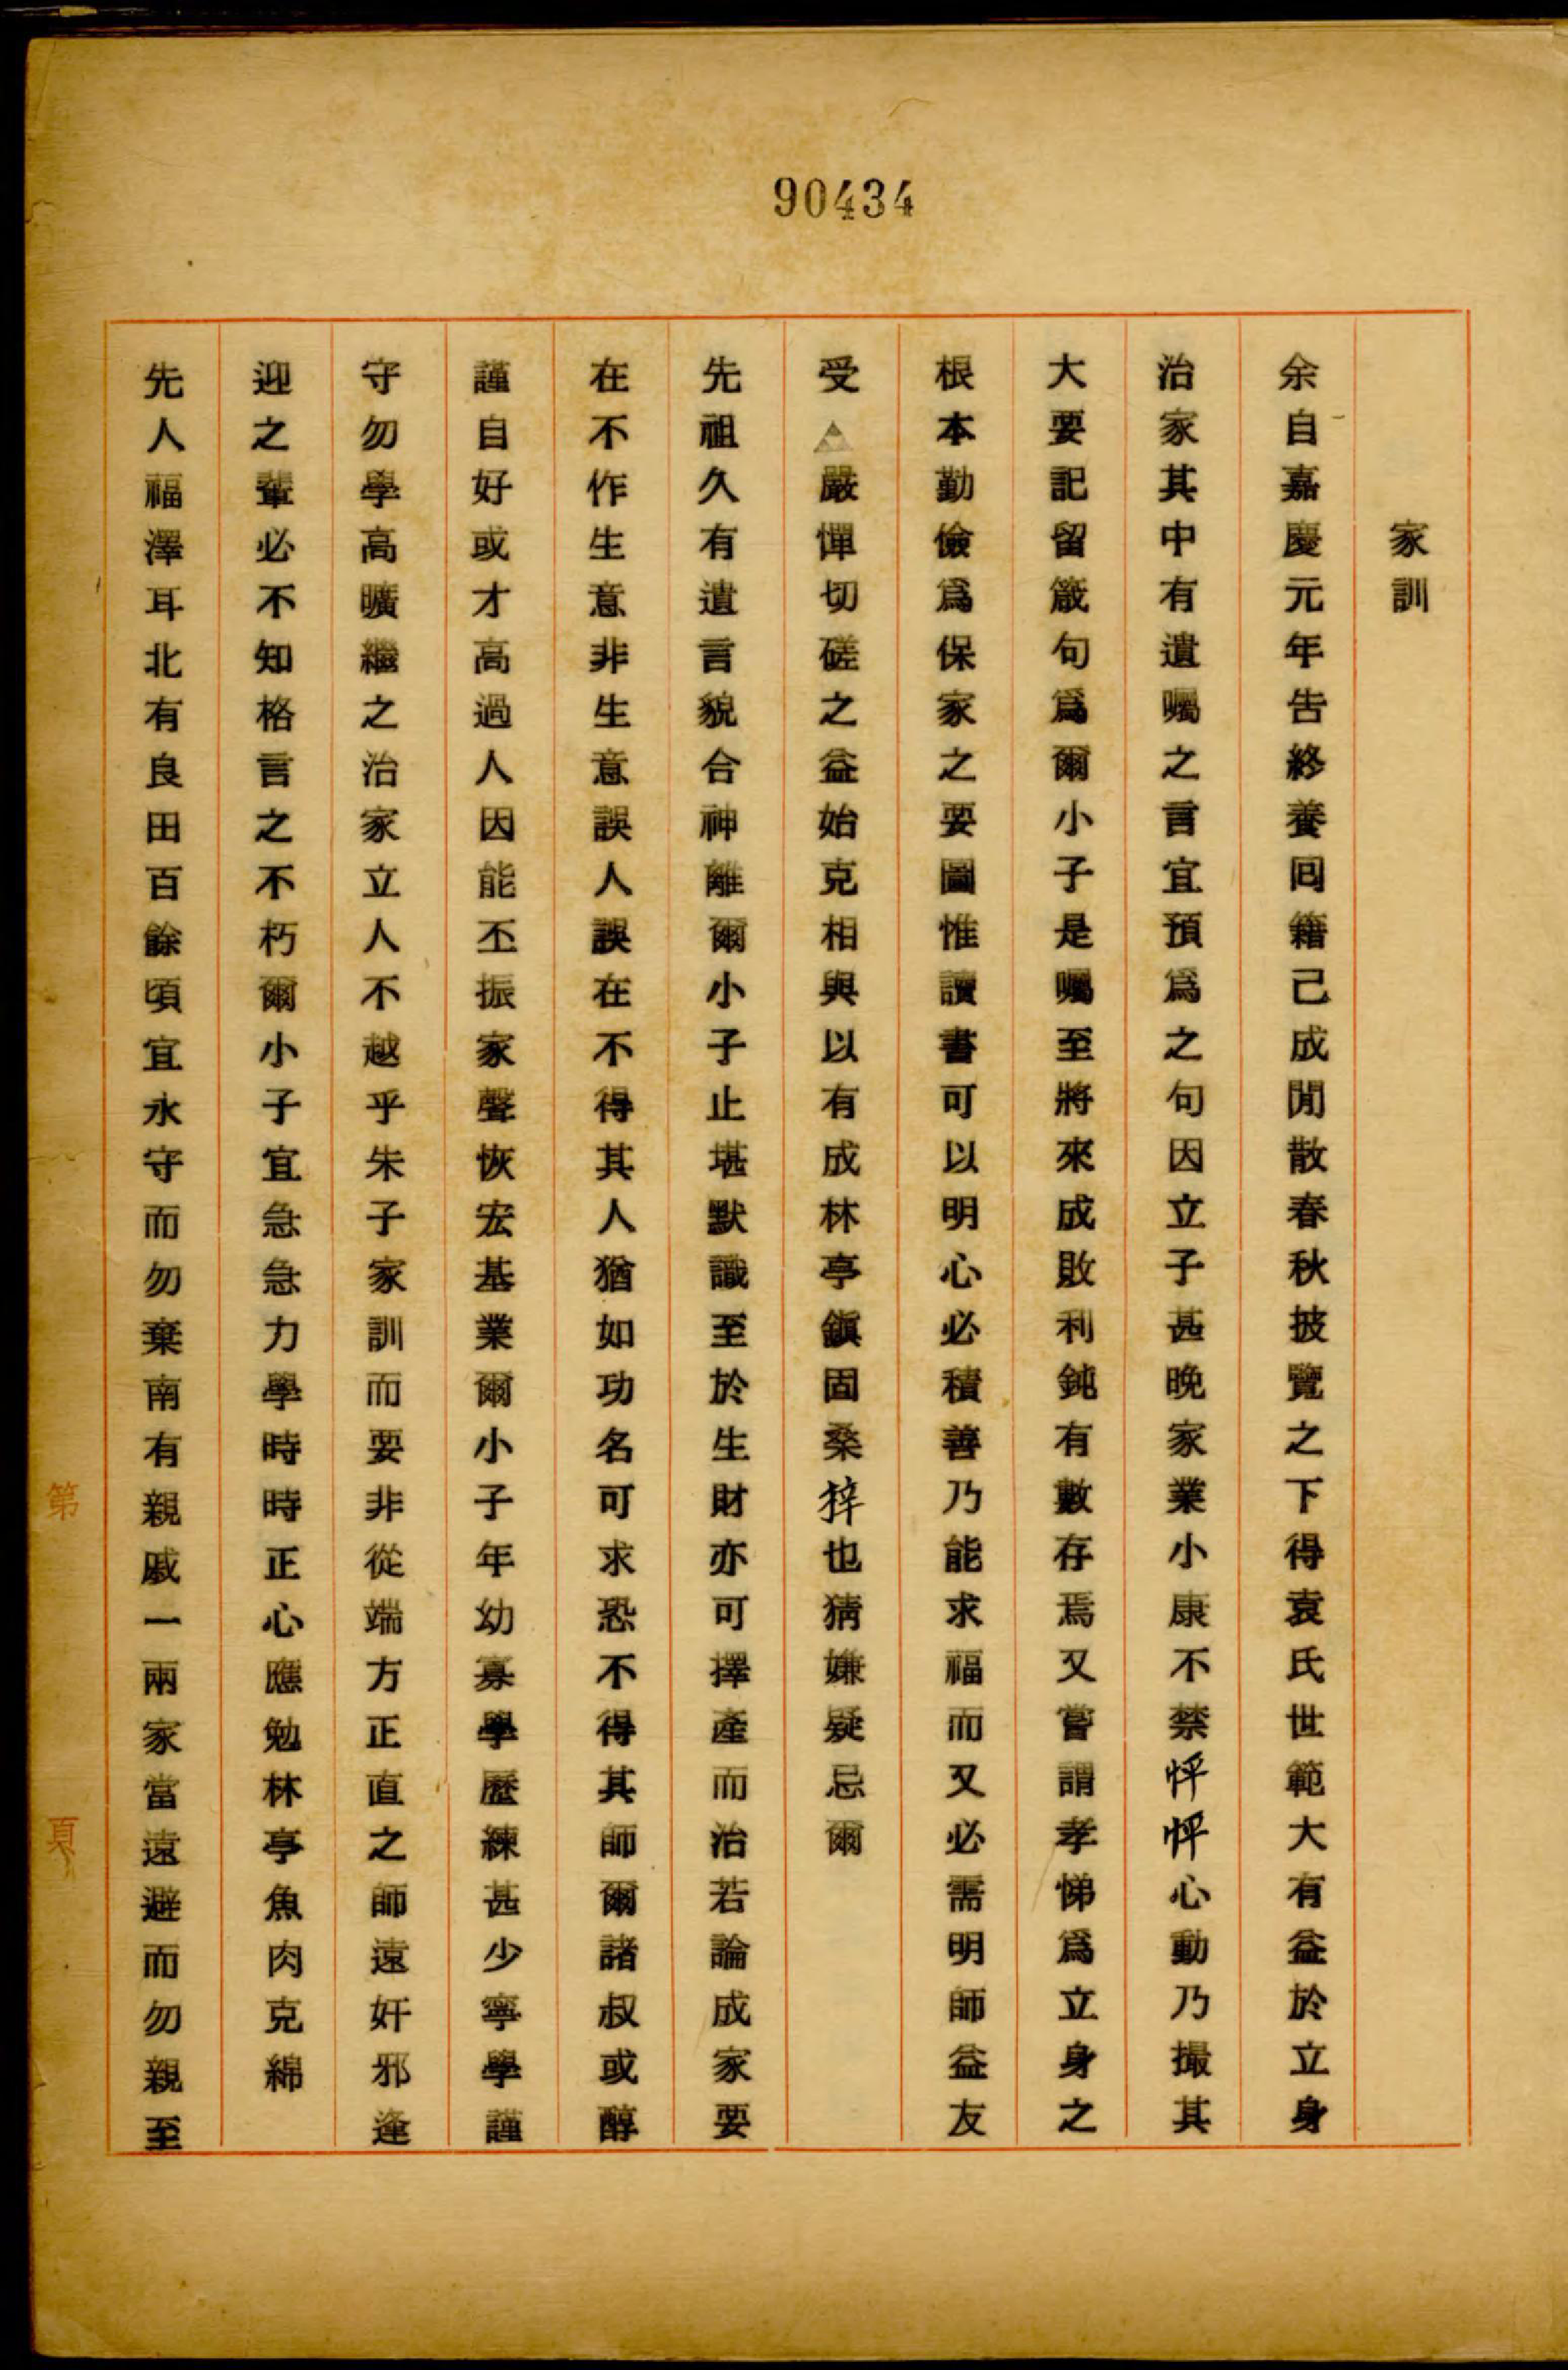 90434
家訓
余自嘉慶元年告終養回籍己成閒散春秋披覽之下得袁氏世範大有益於立身
治家其中有遺囑之言宜預爲之句因立子甚晚家業小康不禁怦怦心動乃撮其
大要記留箴句爲爾小子是囑至將來成敗利鈍有數存焉又嘗謂孝悌爲立身之
根本勤儉爲保家之要圖惟讀書可以明心必積善乃能求福而又必需明師益友
受△嚴憚切磋之益始克相與以有成林亭鎭固桑梓也猜嫌疑忌爾
先祖久有遺言貌合神離爾小子止堪默識至於生財亦可擇產而治若論成家要
在不作生意非生意誤人誤在不得其人猶如功名可求恐不得其師爾諸叔或醇
謹自好或才高過人因能丕振家聲恢宏基業爾小子年幼寡學歷練甚少寧學謹
守勿學高曠繼之治家立人不越乎朱子家訓而要非從端方正直之師遠奸邪逢
迎之輩必不知格言之不朽爾小子宜急急力學時時正心應勉林亭魚肉克綿
先人福澤耳北有良田百餘頃宜永守而勿棄南有親戚一兩家當遠避而勿親至
第
頁